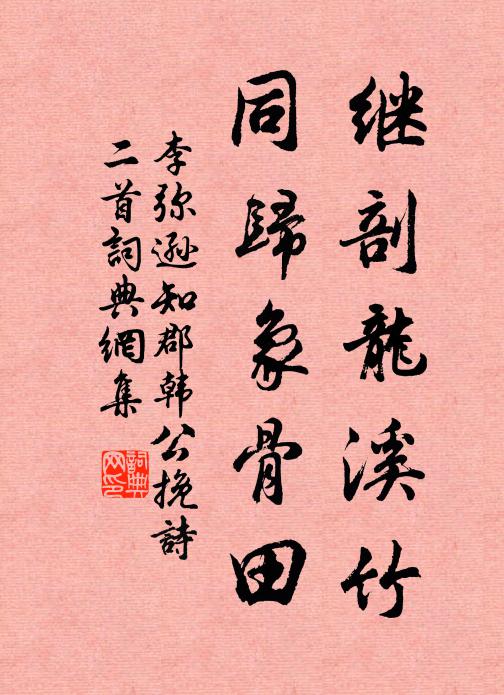 继剖龍溪竹
同歸象骨田
李弥遜知郡韓公挽詩
二首詞典網集
詞典
网印